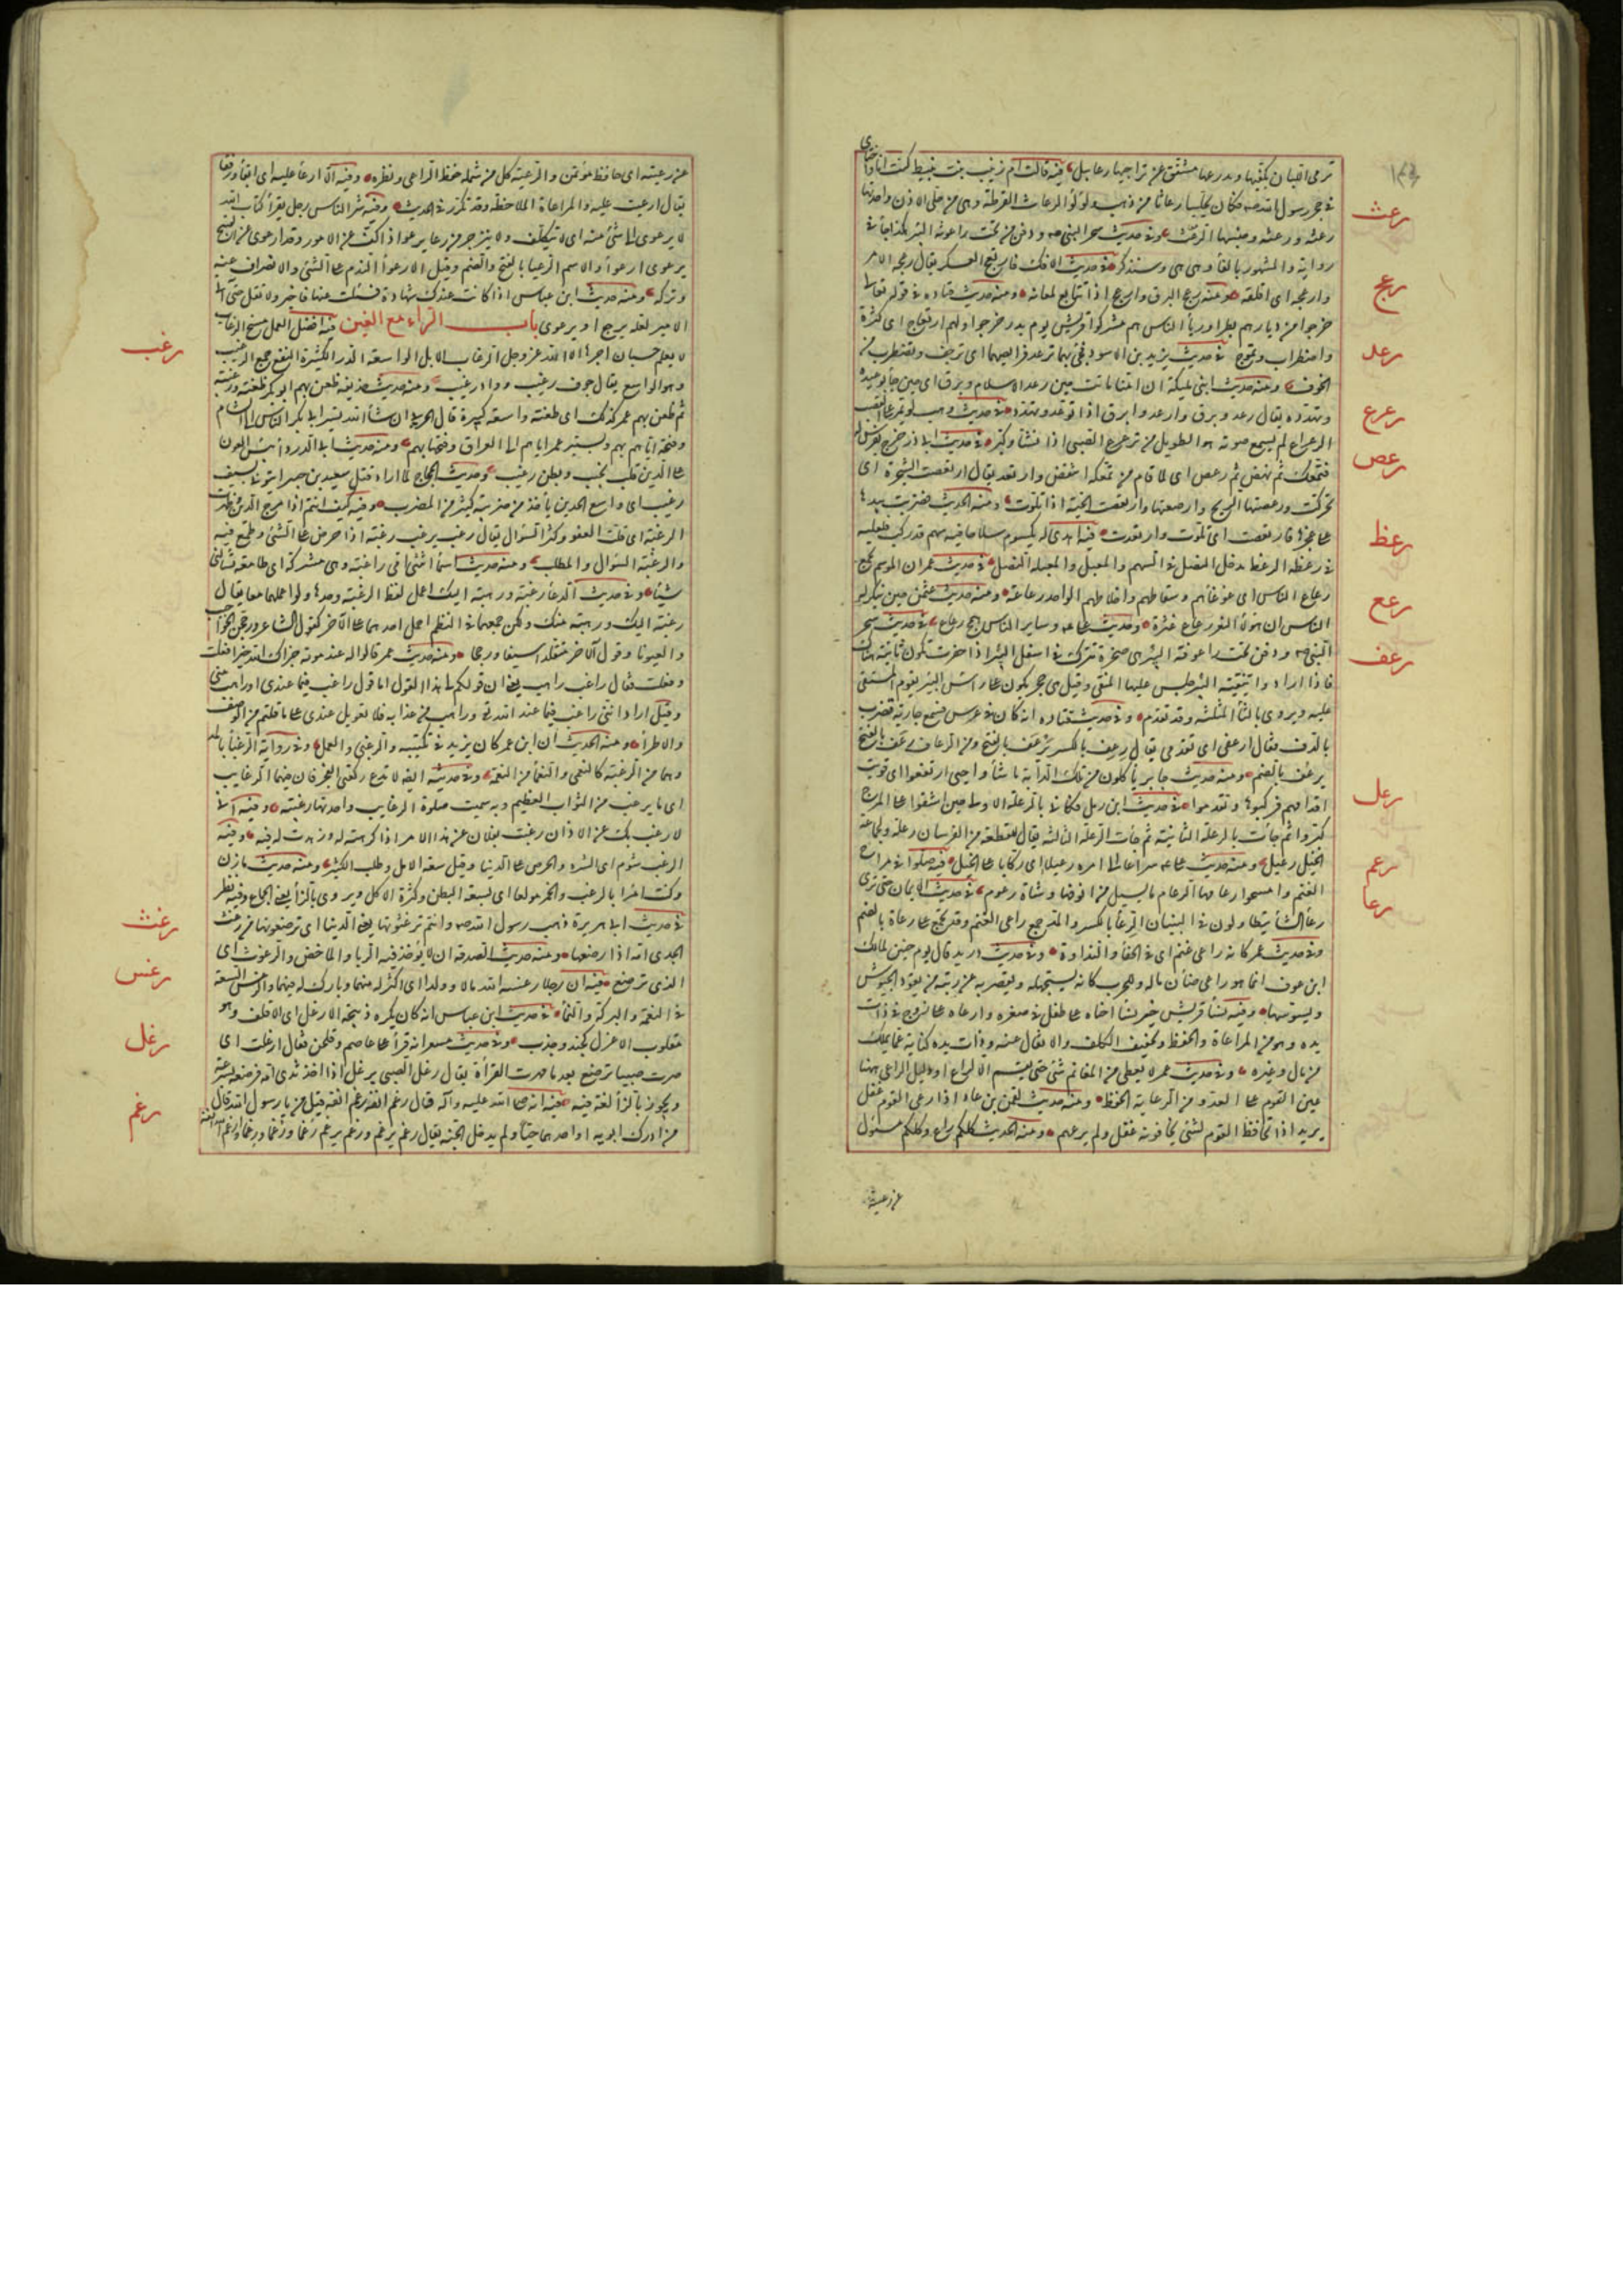 رعث
ترمى اللبان بكفيها ومدرعها مشقق عن تراقيها رعابيل فيه قالت ام زينب بنت نبيط كنت انا واختاى
فى حجر رسول الله صه فكان يحلينا رعاثا من ذهب ولؤلؤ الرعاث القرطة وهى من حلى الاذن واحدتها
رعثة ورعثة وجنسها الرعث وفى حديث سحر النبى صه ودفن تحت راعوثة البئر هكذا جاء فى
رعج
رواية والمشهور بالفاء وهى هى وستذكر فى حديث الافك فارتعج العسكر يقال رعجه الامر
وارعجه اى اقلقه ومنه رعج البرق وارعج اذا تتابع لمعانه ومنه حديث قتاده فى قوله تعالى
خرجوا من ديارهم بطرا ورياء الناس هم مشركوا قريش يوم بدر خرجوا ولهم ارتعاج اى كثرة
رعد
واضطراب وتموج فى حديث يزيد بن الاسود فجئ بهما ترعد فرايصهما اى ترجف وتضطرب من
الخوف ومنه حديث ابنى مليكة ان امنا ماتت حين رعد الاسلام وبرق اى حين جاء بوعيده
رعرع
وتهدده يقال رعد وبرق وارعد وابرق اذا توعد وتهدد فى حديث وهب لو يمر على القصب
رعص
الرعراع لم يسمع صوته هو الطويل من ترعرع الصبى اذا نشأ وكبر فى حديث ابى ذر خرج بفرس له
فتمعك ثم نهض ثم رعص اى لما قام من تمعكه انتفض وارتعد يقال ارتعصت الشجرة اى
تحركت ورعصتها الريح وارعصتها وارتعصت الحية اذا تلوت ومنه الحديث فضربت بيدها
رعظ
على عجزها فارتعصت اى تلوت وارتعدت فيه اهدى له يكسوم سلاحا فيه سهم قد ركب معبله
فى رعظه الرعظ مدخل النصل فى السهم والمعبل والمعبلة النصل فى حديث عمر ان الموسم يجمع
رعع
رعاع الناس اى غوغائهم وسقاطهم واخلاطهم الواحد رعاعة ومنه حديث عثمن حين تنكر له
الناس ان هؤلاء النفر رعاع غثرة وحديث على عه وساير الناس همج رعاع فى حديث سحر
رعف
النبى صه ودفن تحت راعوفة البئر هى صخرة تترك فى اسفل البئر اذا حفرت تكون ثابتة هناك
فاذا ارادوا تنقية البئر جلس عليها المنقى وقيل هى حجر يكون على رأس البئر يقوم المستقى
عليه ويروى بالثاء المثلثة وقد تقدم وفى حديث قتاده انه كان فى عرس فسمع جارية تضرب
بالدف فقال ارعفى اى تقدمى يقال رعف بالكسر يرعف بالفتح ومن الرعاف رعف بالفتح
يرعف بالضم ومنه حديث جابر يأكلون من تلك الدابة ما شاؤا حتى ارتعفوا اى قويت
رعل
اقدامهم فركبوها وتقدموا فى حديث ابن زمل فكانى بالرعلة الاولى حين اشفوا على المرج
كبروا ثم جاءت الرعلة الثانية ثم جاءت الرعلة الثالثة يقال للقطعة من الفرسان رعلة ولجماعة
رعم
الخيل رعيل ومنه حديث على عه سراعا الى امره رعيلا اى ركابا على الخيل فيه صلوا فى مراح
رعا
الغنم وامسحوا رعامها الرعام ما يسيل من انوفها وشاة رعوم فى حديث الايمان حتى ترى
رعاء الشاء يتطاولون فى البنيان الرعاء بالكسر والمد جمع راعى الغنم وقد يجمع على رعاة بالضم
وفى حديث عمر كانه راعى غنم اى فى الجفاء والبذاوة وفى حديث دريد قال يوم حنين لمالك
ابن عوف انما هو راعى ضأن ماله وللحرب كانه يستجهله ويقصر به عن رتبة من يقود الجيوش
ويسوسها وفيه نساء قريش خير نساء احناه على طفل فى صغره وارعاه على زوج فى ذات
يده وهو من المراعاة والحفظ وتخفيف الكلف والاثقال عنه وذات يده كناية عما يملك
من مال وغيره وفى حديث عمر لا يعطى من المغانم شئ حتى يقسم الا لراع او دليل الراعى ههنا
عين القوم على العدو من الرعاية الحفظ ومنه حديث لقمن بن عاد اذا رعى القوم غفل
يريد اذا تحافظ القوم لشئ يخافونه غفل ولم يرعهم ومنه الحديث كلكم راع وكلكم مسئول
عن رعيته
عن رعيته اى حافظ مؤتمن والرعية كل من شمله حفظ الراعى ونظره وفيه الا ارعاء عليه اى ابقاء ورفقا
يقال ارعيت عليه والمراعاة الملاحظة وقد تكرر فى الحديث وفيه شر الناس رجل يقرأ كتاب الله
لا يرعوى الى شئ منه اى لا ينكف ولا ينزجر من رعا يرعو اذا كف عن الامور وقد ارعوى عن القبيح
يرعوى ارعواء والاسم الرعيا بالفتح والضم وقيل الارعواء الندم على الشئ والانصراف عنه
وتركه ومنه حديث ابن عباس اذا كانت عندك شهادة فسئلت عنها فاخبر ولا تقل حتى اتى
رغب
الامير لعله يرجع او يرعوى باب الراء مع الغين فيه افضل العمل منح الرغاب
لا يعلم حسبان اجرها الا الله عز وجل الرغاب الابل الواسعة الدر الكثيرة النفع جمع الرغيب
وهو الواسع يقال جوف رغيب وواد رغيب ومنه حديث حذيفة ظعن بهم ابو بكر ظعنة رغيبة
ثم ظعن بهم عمر كذلك اى ظعنة واسعة كبيرة قال الحربى ان شاء الله تسيير ابى بكر الناس الى الشام
وفتحه اياها بهم وتسيير عمر اياهم الى العراق وفتحها بهم ومنه حديث ابى الدرداء بئس العون
على الدين قلب نخيب وبطن رغيب وحديث الحجاج لما اراد قتل سعيد بن جبير ايتونى بسيف
رغيب اى واسع الحدين يأخذ من ضربته كثيرا من المضرب وفيه كيف انتم اذا مرج الدين وظهرت
الرغبة اى قلت العفة وكثر السؤال يقال رغب يرغب رغبة اذا حرص على الشئ وطمع فيه
والرغبة السؤال والطلب ومنه حديث اسماء اتتنى امى راغبة وهى مشركة اى طامعة تسألنى
شيئا وفى حديث الدعاء رغبة ورهبة اليك اعمل لفظ الرغبة وحدها ولو اعملهما معا لقال
رغبة اليك ورهبة منك ولكن لما جمعهما فى النظم حمل احدهما على الآخر كقول الشاعر وزججن الحواجب
والعيونا وقول الآخر متقلدا سيفا ورمحا ومنه حديث عمر قالوا له عند موته جزاك الله خيرا فعلت
وفعلت فقال راغب وراهب يعنى ان قولكم لى هذا القول اما قول راغب فيما عندى او راهب منى
وقيل اراد اننى راغب فيما عند الله تع وراهب من عذابه فلا تعويل عندى على ما قلتم من الوصف
والاطراء ومنه الحديث ان ابن عمر كان يزيد فى تلبيته والرغبى اليك والعمل وفى رواية الرغباء بالمد
وهما من الرغبة كالنعمى والنعماء من النعمة وفى حديثه ايضا لا تدع ركعتى الفجر فان فيهما الرغايب
اى ما يرغب من الثواب العظيم وبه سميت صلوة الرغايب واحدتها رغيبة وفيه انى
لارغب بك عن الاذان رغبت بفلان عن هذا الامر اذا كرهته له وزهدت له فيه وفيه
الرغب شوم اى الشره والحرص على الدنيا وقيل سعة الامل وطلب الكثير ومنه حديث مازن
وكنت امرأ بالرغب والخمر مولعا اى بسعة البطن وكثرة الاكل ويروى بالزاء يعنى الجماع وفيه نظر
رغث
فى حديث ابى هريرة ذهب رسول الله صه وانتم ترغثونها يعنى الدنيا اى ترضعونها من رغث
الجدى امه اذا رضعها ومنه حديث الصدقة ان لا يؤخذ فيها الربا والماخض والرغوث اى
رغس
التى ترضع فيه ان رجلا رغسه الله مالا وولدا اى اكثر له منهما وبارك له فيهما والرغس السعة
رغل
فى النعمة والبركة والنماء فى حديث ابن عباس انه كان يكره ذبيحة الارغل اى الاقلف وهو
مقلوب الاغرل كجبذ وجذب وفى حديث مسعر انه قرأ على عاصم فلحن فقال ارغلت اى
صرت صبيا ترضع بعد ما مهرت القرأة يقال رغل الصبى يرغل اذا اخذ ثدى امه فرضعه بسرعة
رغم
ويجوز بالزاء لغة فيه فيه انه صلى الله عليه وآله قال رغم انفه رغم انفه قيل من يا رسول الله قال
من ادرك ابويه او احدهما حيا ولم يدخل الجنة يقال رغم يرغم ورغم يرغم رغما ورغما ورغما وارغم الله انفه